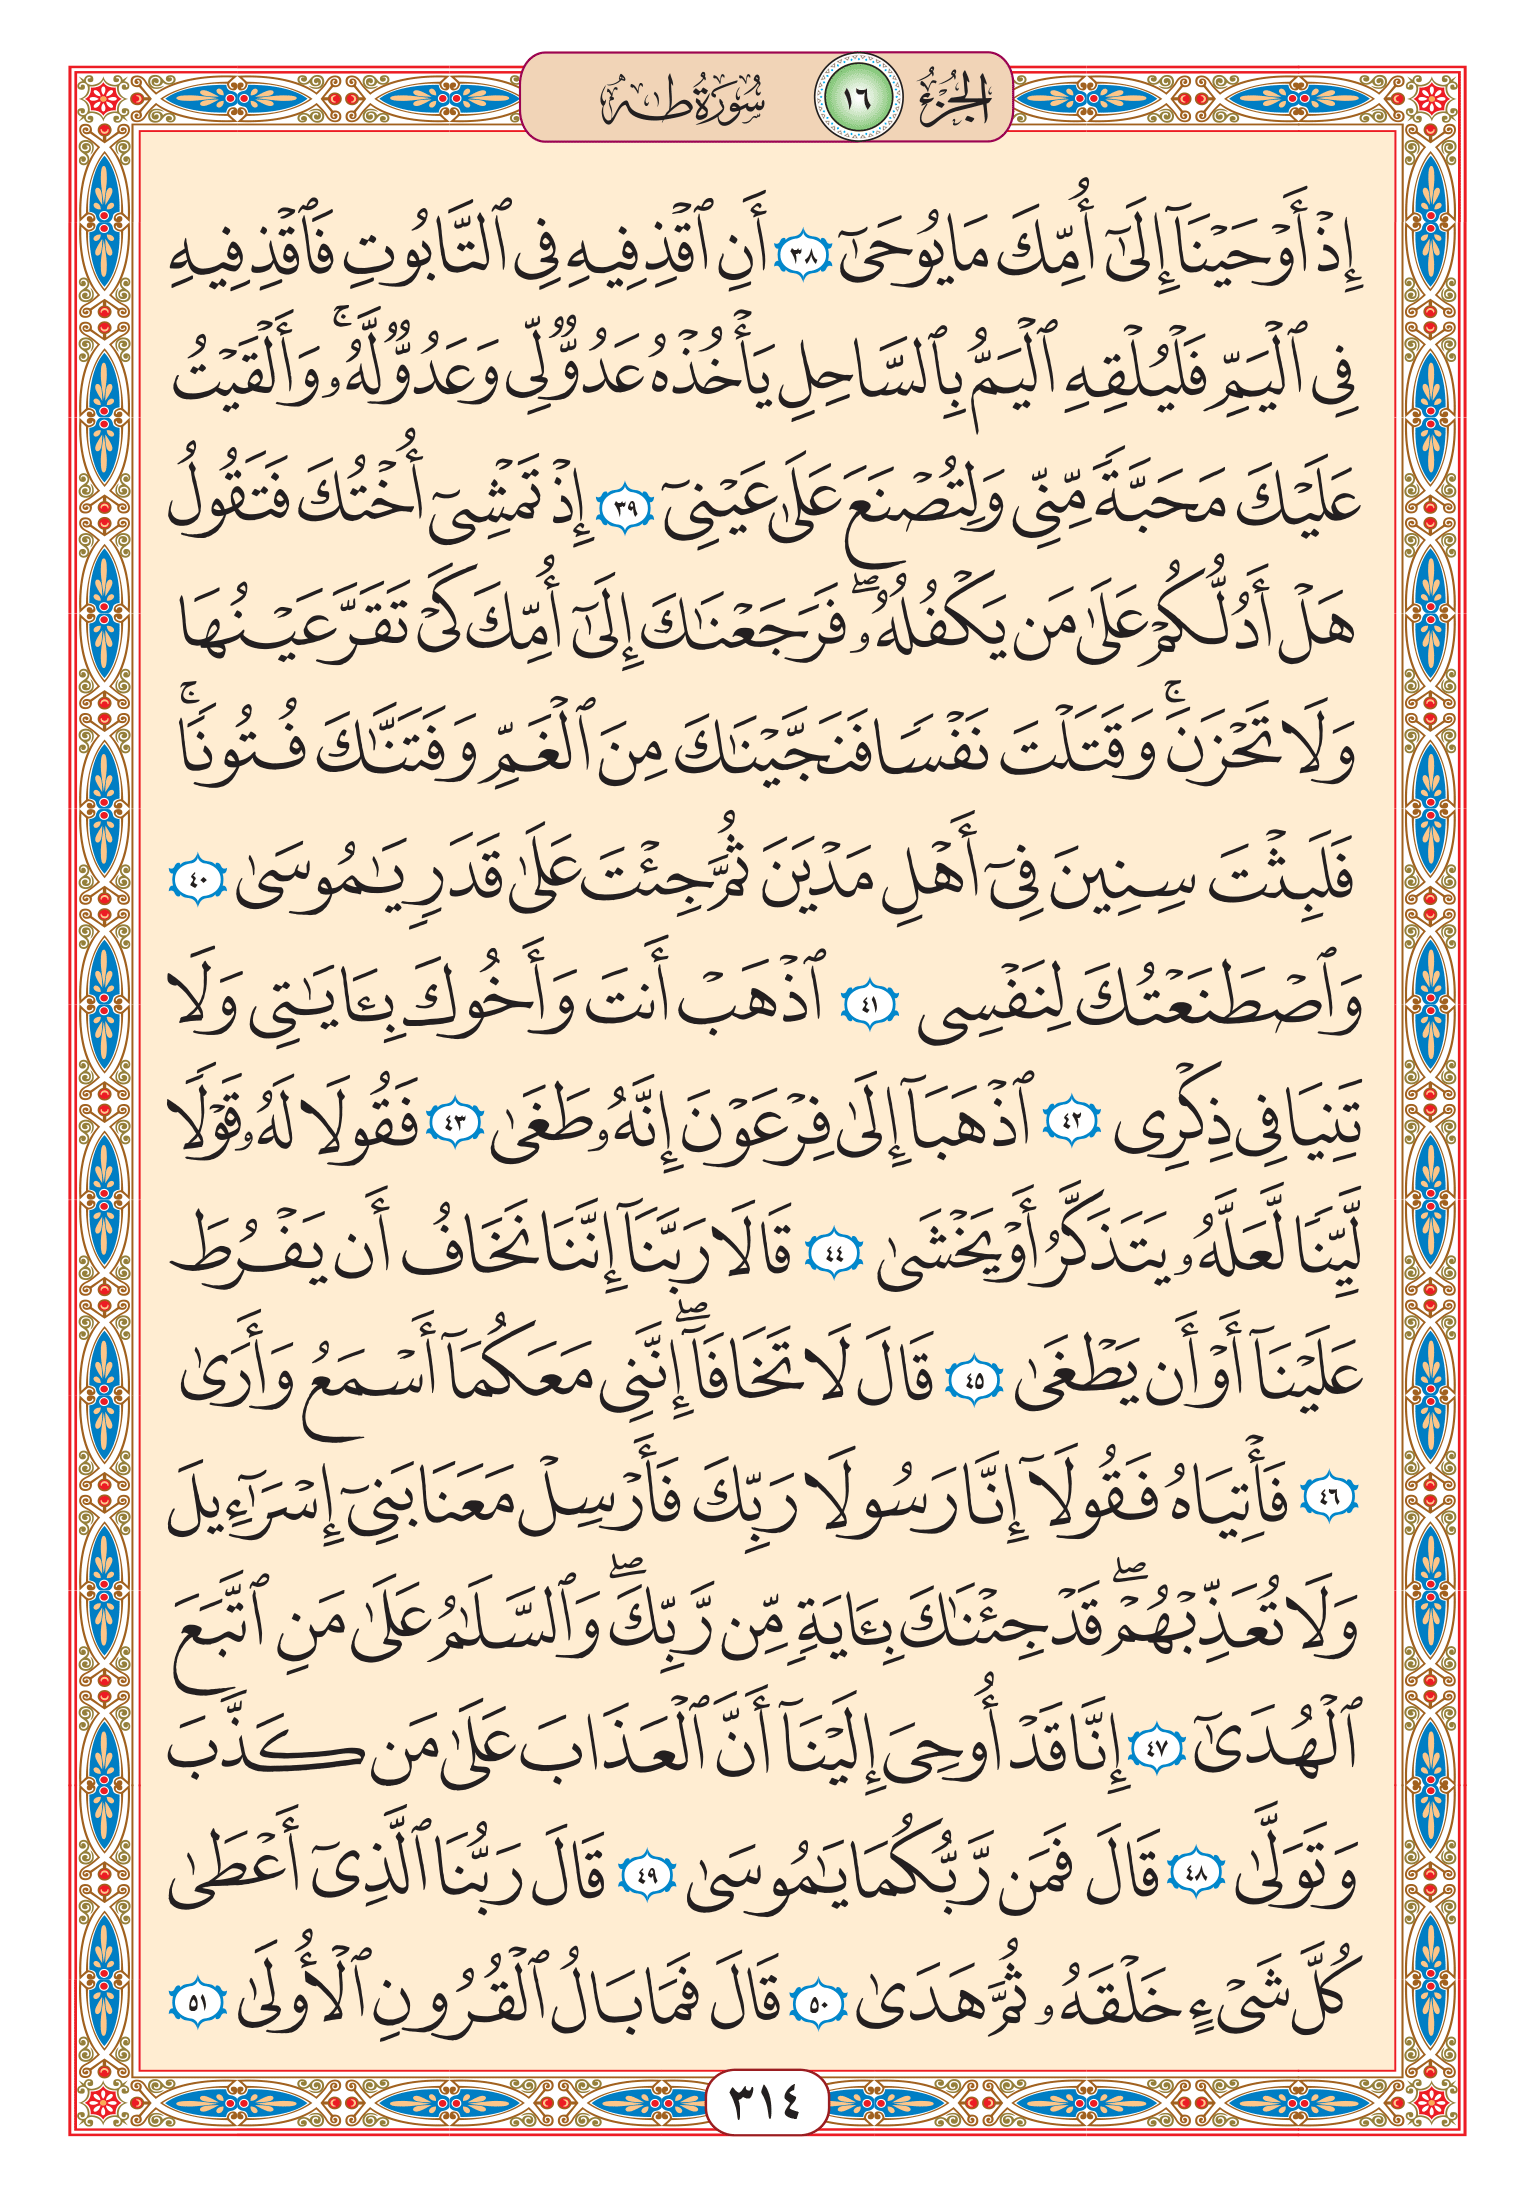 الجزء ١٦ سورة طه
إِذْ أَوْحَيْنَآ إِلَىٰٓ أُمِّكَ مَا يُوحَىٰٓ ٣٨ أَنِ ٱقْذِفِيهِ فِى ٱلتَّابُوتِ فَٱقْذِفِيهِ
فِى ٱلْيَمِّ فَلْيُلْقِهِ ٱلْيَمُّ بِٱلسَّاحِلِ يَأْخُذْهُ عَدُوٌّ لِّى وَعَدُوٌّ لَّهُۥ ۚ وَأَلْقَيْتُ
عَلَيْكَ مَحَبَّةً مِّنِّى وَلِتُصْنَعَ عَلَىٰ عَيْنِىٓ ٣٩ إِذْ تَمْشِىٓ أُخْتُكَ فَتَقُولُ
هَلْ أَدُلُّكُمْ عَلَىٰ مَن يَكْفُلُهُۥ ۖ فَرَجَعْنَٰكَ إِلَىٰٓ أُمِّكَ كَىْ تَقَرَّ عَيْنُهَا
وَلَا تَحْزَنَ ۚ وَقَتَلْتَ نَفْسًا فَنَجَّيْنَٰكَ مِنَ ٱلْغَمِّ وَفَتَنَّٰكَ فُتُونًا ۚ
فَلَبِثْتَ سِنِينَ فِىٓ أَهْلِ مَدْيَنَ ثُمَّ جِئْتَ عَلَىٰ قَدَرٍ يَٰمُوسَىٰ ٤٠
وَٱصْطَنَعْتُكَ لِنَفْسِى ٤١ ٱذْهَبْ أَنتَ وَأَخُوكَ بِـَٔايَٰتِى وَلَا
تَنِيَا فِى ذِكْرِى ٤٢ ٱذْهَبَآ إِلَىٰ فِرْعَوْنَ إِنَّهُۥ طَغَىٰ ٤٣ فَقُولَا لَهُۥ قَوْلًا
لَّيِّنًا لَّعَلَّهُۥ يَتَذَكَّرُ أَوْ يَخْشَىٰ ٤٤ قَالَا رَبَّنَآ إِنَّنَا نَخَافُ أَن يَفْرُطَ
عَلَيْنَآ أَوْ أَن يَطْغَىٰ ٤٥ قَالَ لَا تَخَافَآ ۖ إِنَّنِى مَعَكُمَآ أَسْمَعُ وَأَرَىٰ
٤٦ فَأْتِيَاهُ فَقُولَآ إِنَّا رَسُولَا رَبِّكَ فَأَرْسِلْ مَعَنَا بَنِىٓ إِسْرَٰٓءِيلَ
وَلَا تُعَذِّبْهُمْ ۖ قَدْ جِئْنَٰكَ بِـَٔايَةٍ مِّن رَّبِّكَ ۖ وَٱلسَّلَٰمُ عَلَىٰ مَنِ ٱتَّبَعَ
ٱلْهُدَىٰٓ ٤٧ إِنَّا قَدْ أُوحِىَ إِلَيْنَآ أَنَّ ٱلْعَذَابَ عَلَىٰ مَن كَذَّبَ
وَتَوَلَّىٰ ٤٨ قَالَ فَمَن رَّبُّكُمَا يَٰمُوسَىٰ ٤٩ قَالَ رَبُّنَا ٱلَّذِىٓ أَعْطَىٰ
كُلَّ شَىْءٍ خَلْقَهُۥ ثُمَّ هَدَىٰ ٥٠ قَالَ فَمَا بَالُ ٱلْقُرُونِ ٱلْأُولَىٰ ٥١
٣١٤